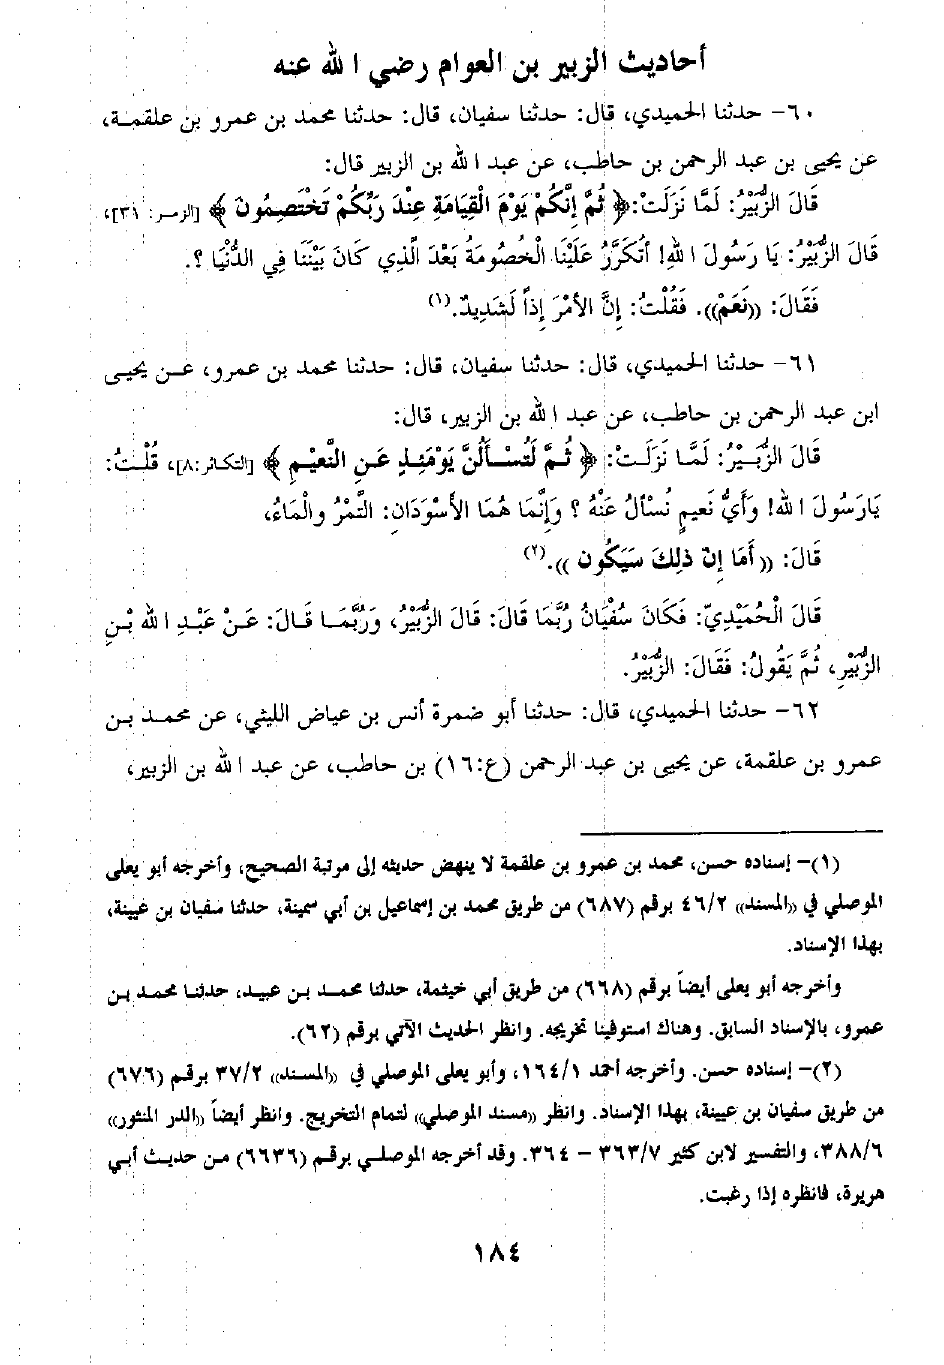 أحاديث الزبير بن العوام رضي الله عنه
٦٠- حدثنا الحميدي، قال: حدثنا سفيان، قال: حدثنا محمد بن عمرو بن علقمة،
عن يحيى بن عبد الرحمن بن حاطب، عن عبد الله بن الزبير قال:
قَالَ الزُّبَيْرُ: لَمَّا نَزَلَتْ: ﴿ ثُمَّ إِنَّكُمْ يَوْمَ الْقِيَامَةِ عِنْدَ رَبِّكُمْ تَخْتَصِمُونَ ﴾ [الزمر: ٣١]،
قَالَ الزُّبَيْرُ: يَا رَسُولَ اللهِ! أَتُكَرَّرُ عَلَيْنَا الْخُصُومَةُ بَعْدَ الَّذِي كَانَ بَيْنَنَا فِي الدُّنْيَا ؟.
فَقَالَ: ((نَعَمْ)). فَقُلْتُ: إِنَّ الأَمْرَ إِذاً لَشَدِيدٌ.(١)
٦١- حدثنا الحميدي، قال: حدثنا سفيان، قال: حدثنا محمد بن عمرو، عن يحيى
ابن عبد الرحمن بن حاطب، عن عبد الله بن الزبير، قال:
قَالَ الزُّبَيْرُ: لَمَّا نَزَلَتْ: ﴿ ثُمَّ لَتُسْأَلُنَّ يَوْمَئِذٍ عَنِ النَّعِيمِ ﴾ [التكاثر:٨]، قُلْتُ:
يَارَسُولَ اللهِ! وَأَيُّ نَعِيمٍ نُسْأَلُ عَنْهُ ؟ وَإِنَّمَا هُمَا الأَسْوَدَانِ: التَّمْرُ والْمَاءُ،
قَالَ: (( أَمَا إِنَّ ذلِكَ سَيَكُون )).(٢)
قَالَ الْحُمَيْدِيّ: فَكَانَ سُفْيَانُ رُبَّمَا قَالَ: قَالَ الزُّبَيْرُ، وَرُبَّمَا قَالَ: عَنْ عَبْدِ اللهِ بْنِ
الزُّبَيْرِ، ثُمَّ يَقُولُ: فَقَالَ: الزُّبَيْرُ.
٦٢- حدثنا الحميدي، قال: حدثنا أبو ضمرة أنس بن عياض الليثي، عن محمد بن
عمرو بن علقمة، عن يحيى بن عبد الرحمن (ع:١٦) بن حاطب، عن عبد الله بن الزبير،
(١)- إسناده حسن، محمد بن عمرو بن علقمة لا ينهض حديثه إلى مرتبة الصحيح، وأخرجه أبو يعلى
الموصلي في ((المسند)) ٤٦/٢ برقم (٦٨٧) من طريق محمد بن إسماعيل بن أبي سمينة، حدثنا سفيان بن عيينة،
بهذا الإسناد.
وأخرجه أبو يعلى أيضاً برقم (٦٦٨) من طريق أبي خيثمة، حدثنا محمد بن عبيد، حدثنا محمد بن
عمرو، بالإسناد السابق. وهناك استوفينا تخريجه. وانظر الحديث الآتي برقم (٦٢).
(٢)- إسناده حسن. وأخرجه أحمد ١٦٤/١، وأبو يعلى الموصلي في ((المسند)) ٣٧/٢ برقم (٦٧٦)
من طريق سفيان بن عيينة، بهذا الإسناد. وانظر ((مسند الموصلي)) لتمام التخريج. وانظر أيضاً ((الدر المنثور))
٣٨٨/٦، والتفسير لابن كثير ٣٦٣/٧ - ٣٦٤. وقد أخرجه الموصلي برقم (٦٦٣٦) من حديث أبي
هريرة، فانظره إذا رغبت.
١٨٤